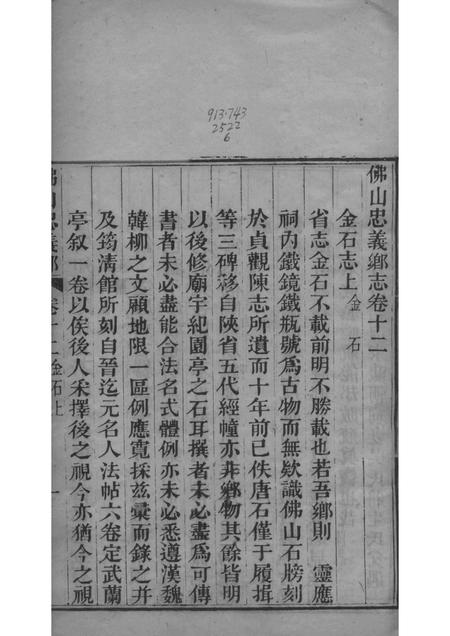 913.743
2522
6
佛山忠義鄉志卷十二
金石志上 金石
省志金石不載前明不勝載也若吾鄉則 靈應
祠內鐵鏡鐵瓶號為古物而無欵識佛山石牓刻
於貞觀陳志所遺而十年前已佚唐石僅于履揖
等三碑移自陜省五代經幢亦非鄉物其餘皆明
以後修廟宇紀園亭之石耳撰者未必盡為可傳
書者未必盡能合法名式體例亦未必悉遵漢魏
韓柳之文顧地限一區例應寬採茲彙而錄之并
及筠清館所刻自晉迄元名人法帖六卷定武蘭
亭叙一卷以俟後人采擇後之視今亦猶今之視
佛山忠義鄉 卷十二金石上 一